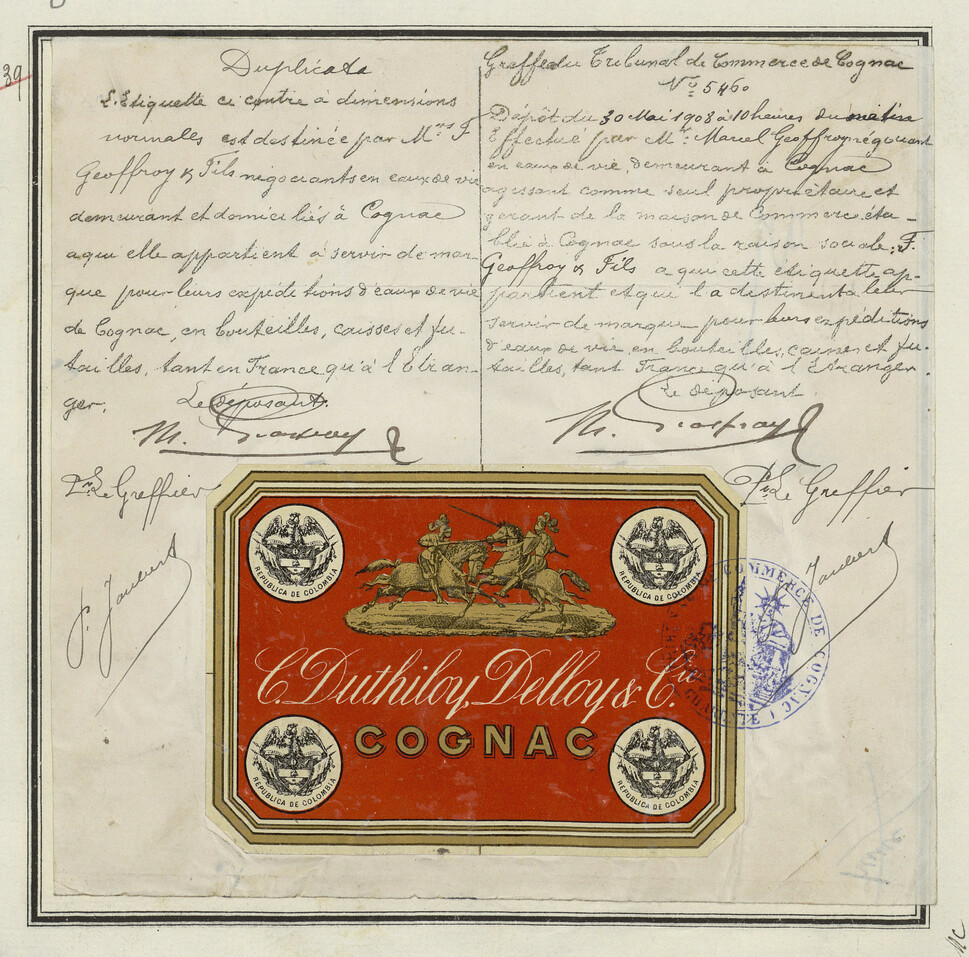 39
Duplicata
L'Etiquette ci contre à dimensions
normales est destinée par Mrs F.
Geoffroy & Fils négociants en eaux de vie
demeurant et domiciliés à Cognac
a qui elle appartient à servir de mar-
que pour leurs expéditions d'eaux de vie
de Cognac, en bouteilles, caisses et fu-
tailles, tant en France qu'à l'Etran-
ger.
Le déposant.
M. Geoffroy
Pr Le Greffier
P. Jaubert
Greffe du Tribunal de Commerce de Cognac
No 5460
Dépôt du 30 Mai 1908 à 10 heures du matin
Effectué par Mr. Marcel Geoffroy négociant
en eaux de vie, demeurant à Cognac
agissant comme seul propriétaire et
gérant de la maison de Commerce éta-
blie à Cognac sous la raison sociale: F.
Geoffroy & Fils a qui cette étiquette ap-
partient et qui l'a destinent a leur
servir de marque pour leurs expéditions
d'eaux de vie, en bouteilles, caisses et fu-
tailles, tant France qu'à l'Etranger.
Le déposant.
M. Geoffroy
Pr Le Greffier
Jaubert
REPUBLICA DE COLOMBIA
REPUBLICA DE COLOMBIA
C. Duthiloy, Delloy & Cie
COGNAC
REPUBLICA DE COLOMBIA
REPUBLICA DE COLOMBIA
COMMERCE DE COGNAC